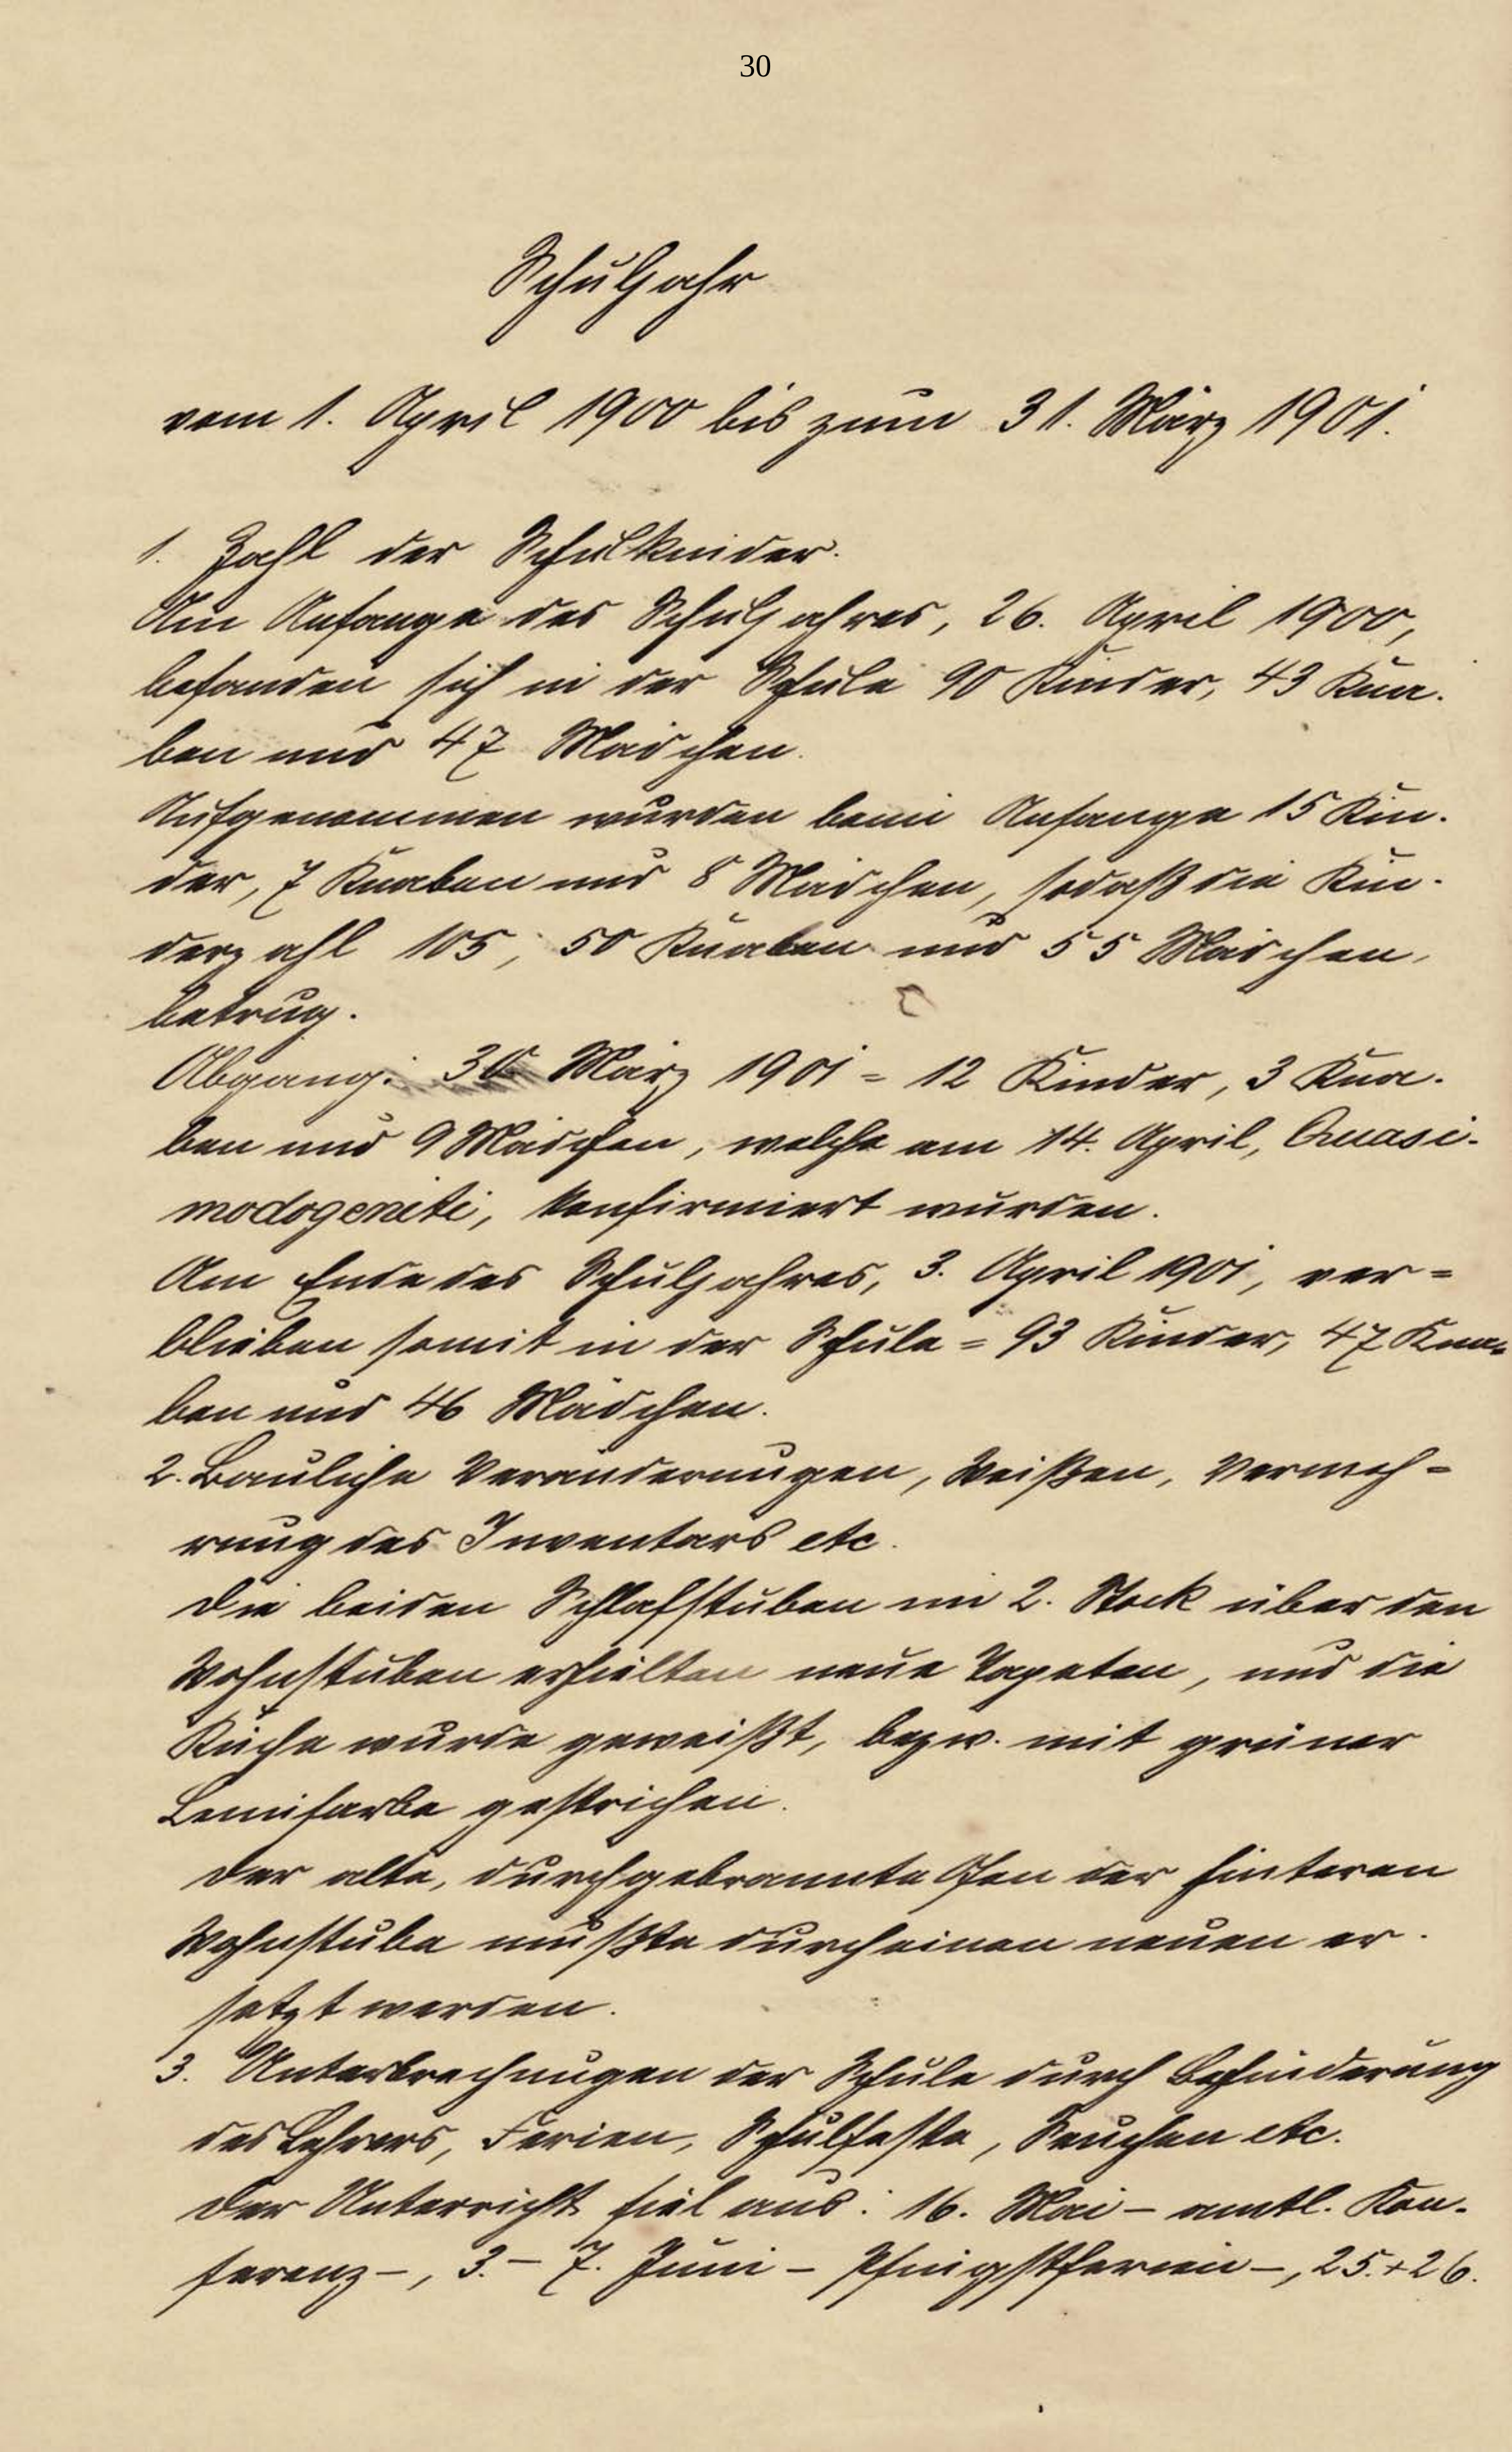 30
Schuljahr
vom 1. April 1900 bis zum 31. März 1901.
1. Zahl der Schulkinder.
Am Anfange des Schuljahres, 26. April 1900,
befanden sich in der Schule 90 Kinder, 43 Kna-
ben und 47 Mädchen.
Aufgenommen wurden beim Anfange 15 Kin-
der, 7 Knaben und 8 Mädchen, sodaß die Kin-
derzahl 105, 50 Knaben und 55 Mädchen,
betrug.
Abgang: 30. März 1901 = 12 Kinder, 3 Kna-
ben und 9 Mädchen, welche am 14. April, Quasi-
modogeniti, konfirmiert wurden.
Am Ende des Schuljahres, 3. April 1901, ver=
blieben somit in der Schule = 93 Kinder, 47 Kna-
ben und 46 Mädchen.
2. Bauliche Veränderungen, Weißen, Vermeh=
rung des Inventars etc.
Die beiden Schlafstuben im 2. Stock über den
Wohnstuben erhielten neue Tapeten, und die
Küche wurde geweißt, bezw. mit grüner
Leimfarbe gestrichen.
Der alte, durchgebrannte Ofen der hinteren
Wohnstube mußte durch einen neuen er-
setzt werden.
3. Unterbrechungen der Schule durch Behinderung
des Lehrers, Ferien, Schulfeste, Seuchen etc.
Der Unterricht fiel aus: 16. Mai – amtl. Kon-
ferenz –, 3. – 7. Juni – Pfingstferien –, 25. + 26.